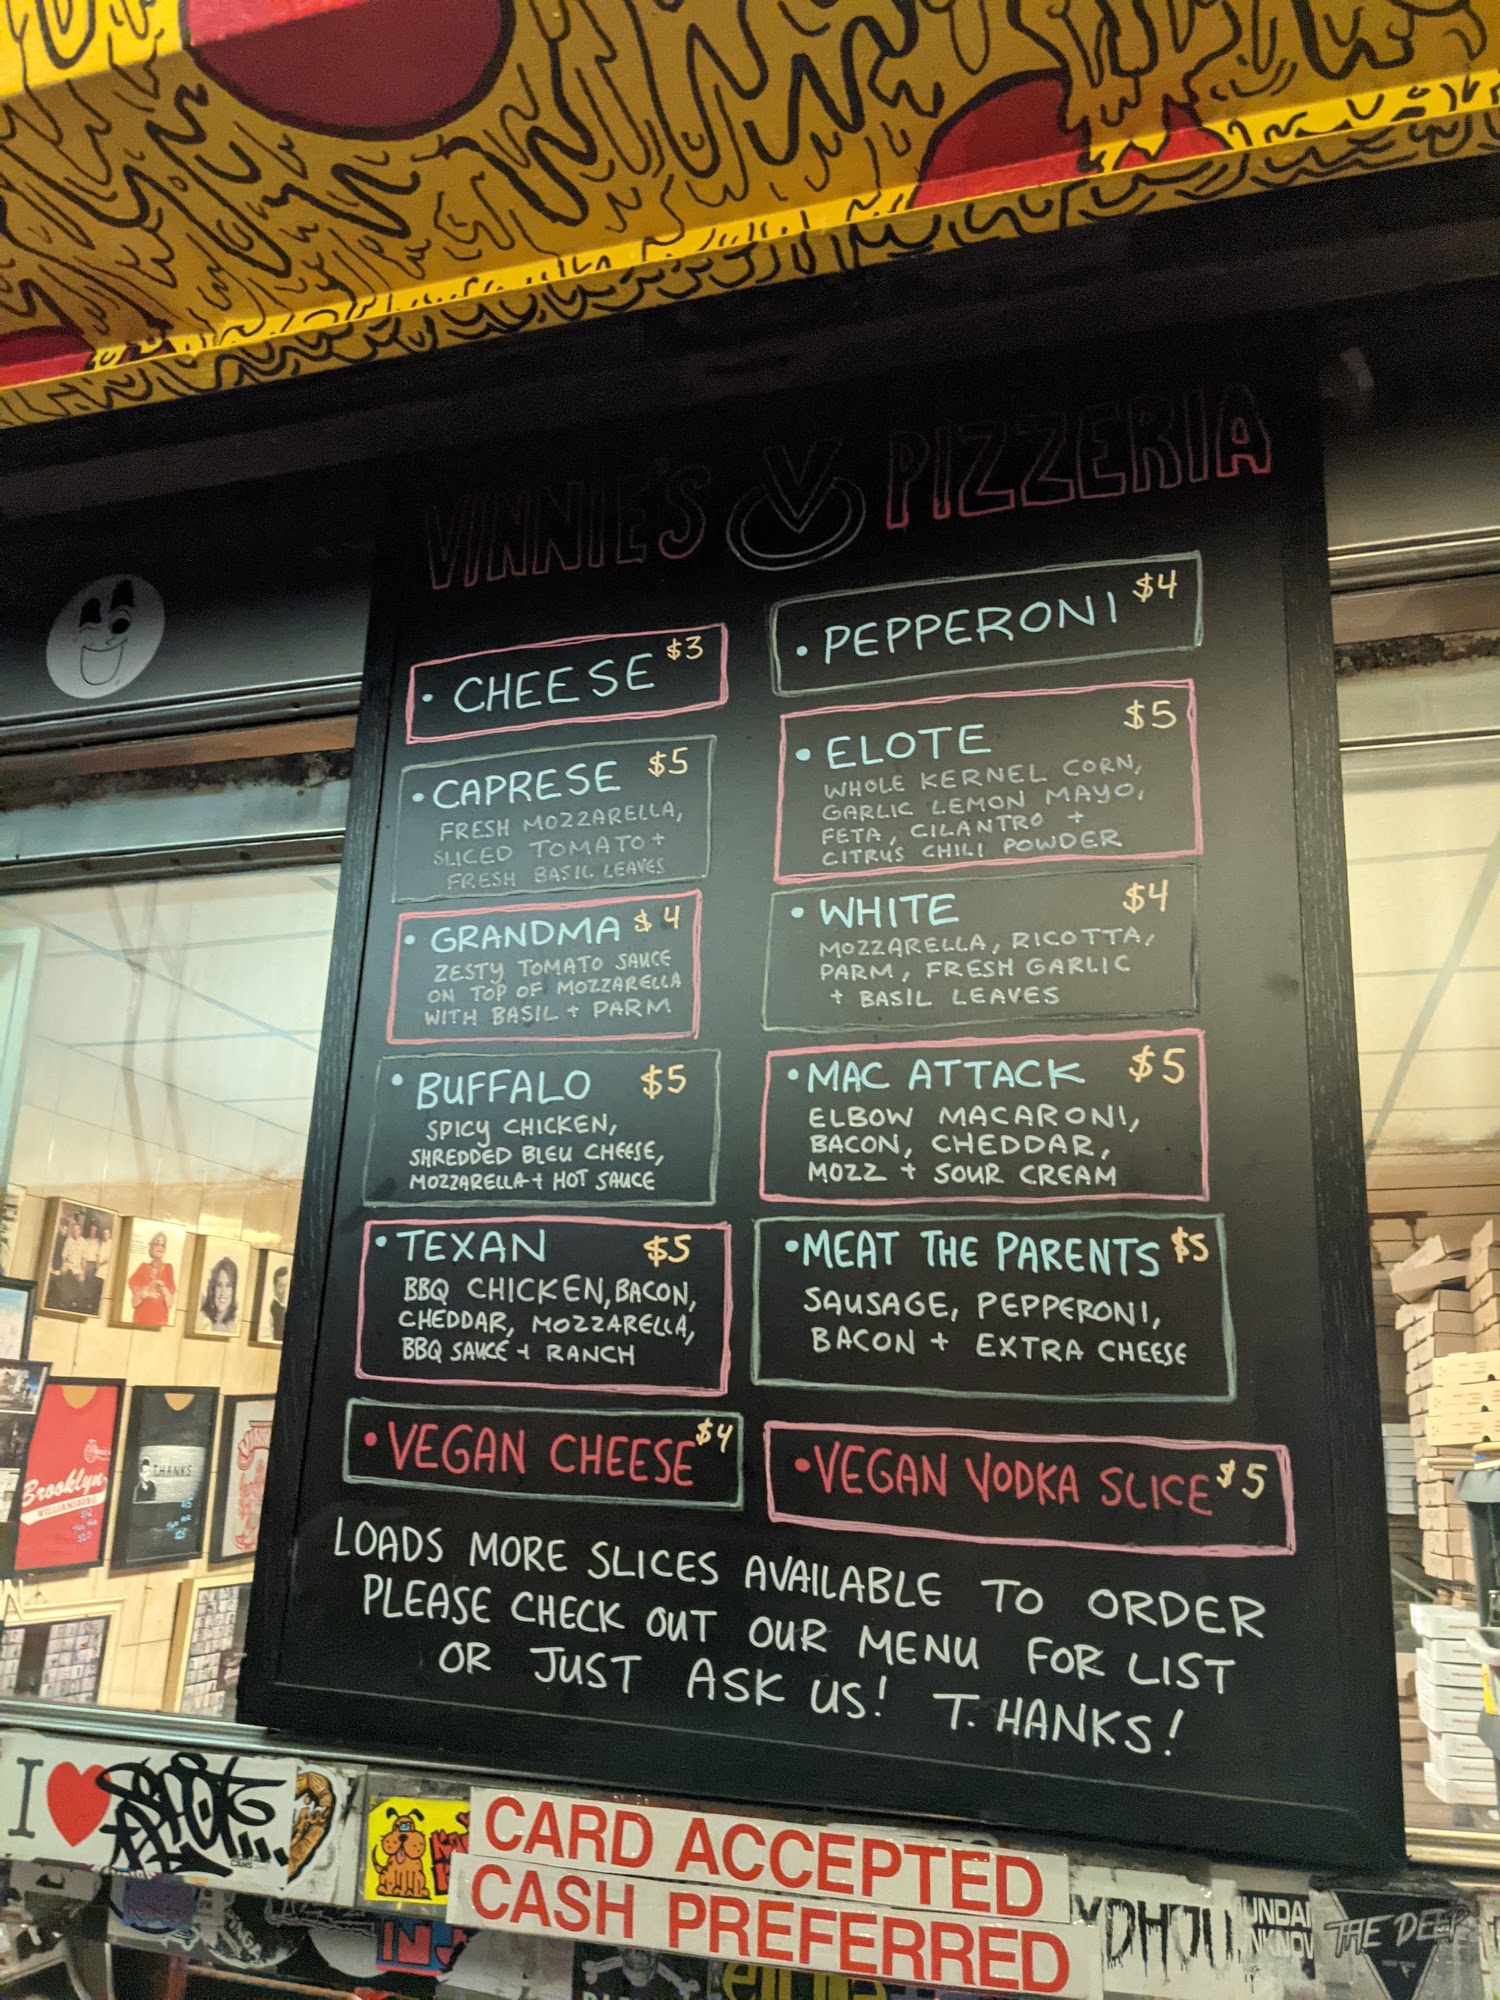 VINNIE'S V PIZZERIA
• CHEESE $3
• CAPRESE $5
FRESH MOZZARELLA,
SLICED TOMATO +
FRESH BASIL LEAVES
• GRANDMA $4
ZESTY TOMATO SAUCE
ON TOP OF MOZZARELLA
WITH BASIL + PARM
• BUFFALO $5
SPICY CHICKEN,
SHREDDED BLEU CHEESE,
MOZZARELLA + HOT SAUCE
• TEXAN $5
BBQ CHICKEN, BACON,
CHEDDAR, MOZZARELLA,
BBQ SAUCE + RANCH
• VEGAN CHEESE $4
• PEPPERONI $4
• ELOTE $5
WHOLE KERNEL CORN,
GARLIC LEMON MAYO,
FETA, CILANTRO +
CITRUS CHILI POWDER
• WHITE $4
MOZZARELLA, RICOTTA,
PARM, FRESH GARLIC
+ BASIL LEAVES
• MAC ATTACK $5
ELBOW MACARONI,
BACON, CHEDDAR,
MOZZ + SOUR CREAM
• MEAT THE PARENTS $5
SAUSAGE, PEPPERONI,
BACON + EXTRA CHEESE
• VEGAN VODKA SLICE $5
LOADS MORE SLICES AVAILABLE TO ORDER
PLEASE CHECK OUT OUR MENU FOR LIST
OR JUST ASK US! T.HANKS!
Brooklyn
WILLIAMSBURG
THANKS
I
CARD ACCEPTED
CASH PREFERRED
THE DEEP